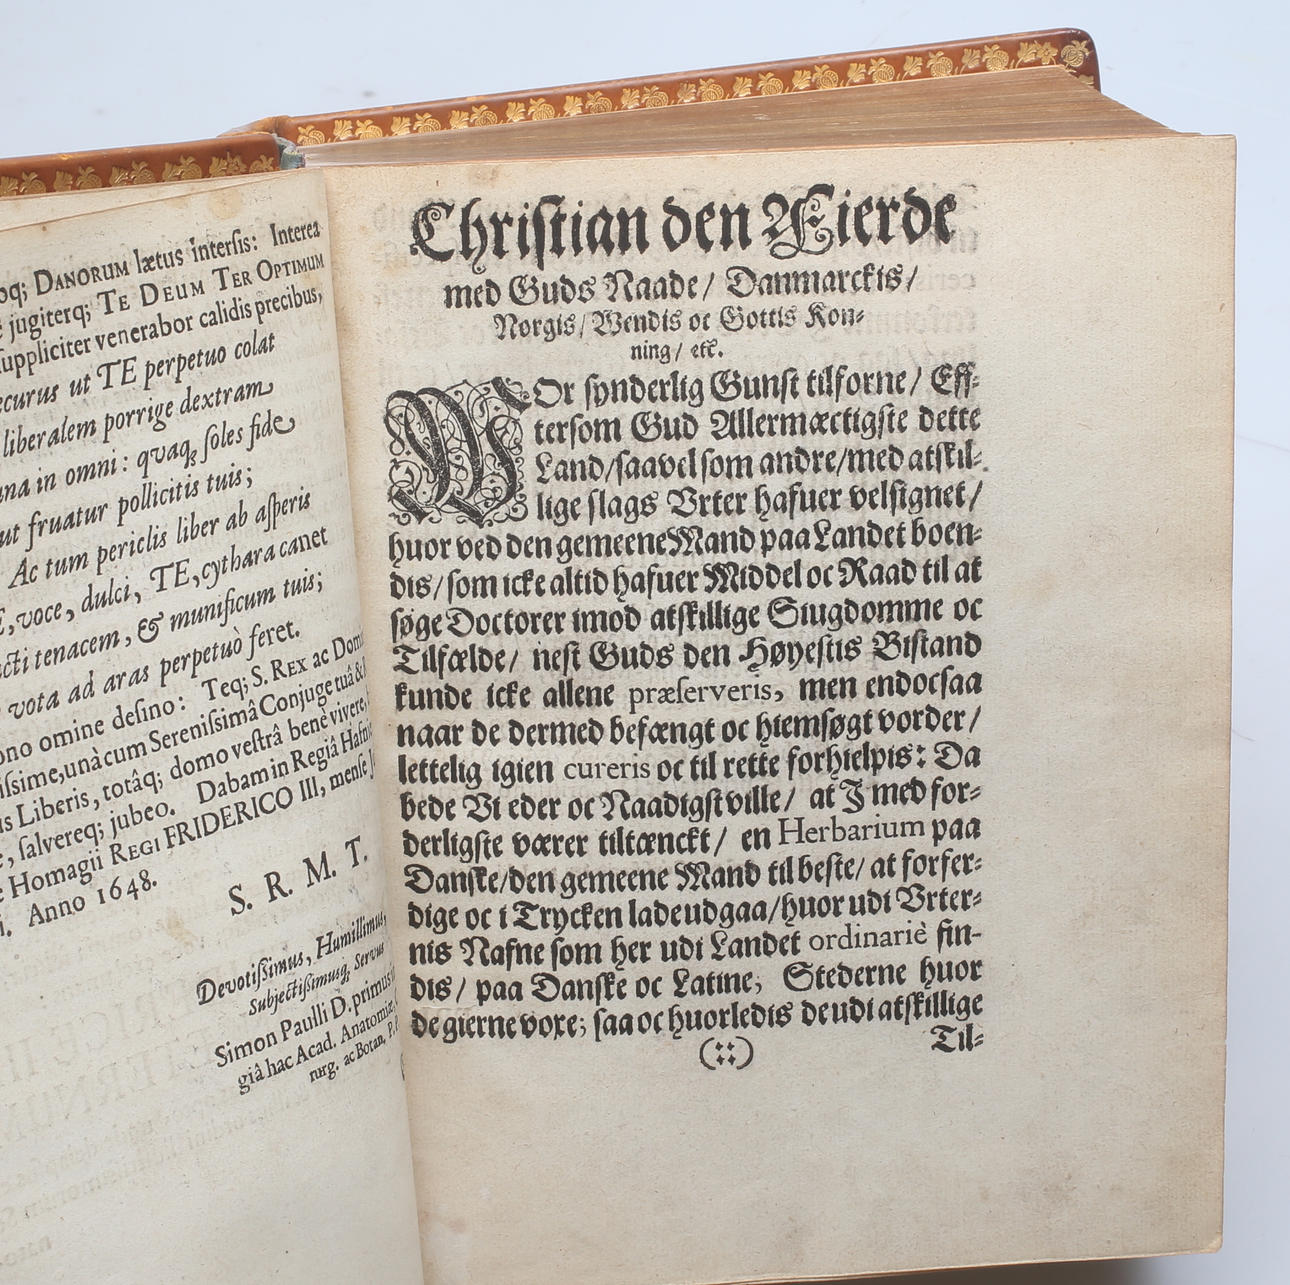 DANORUM lætus intersis: Interea
jugiterq; TE DEUM TER OPTIMUM
suppliciter venerabor calidis precibus,
ecurus ut TE perpetuo colat
liberalem porrige dextram
in omni: quaq; soles fide
ut fruatur pollicitis tuis;
Ac tum periclis liber ab asperis
voce, dulci, TE, cythara canet
tenacem, & munificum tuis;
vota ad aras perpetuò feret.
ono omine desino: Teq; S. REX ac Domi
issime, unà cum Serenissimâ Conjuge tuâ &
Liberis, totâq; domo vestrâ benè vivere,
salvereq; jubeo. Dabam in Regiâ Hafni
Homagii REGI FRIDERICO III, mense
Anno 1648.
S. R. M. T.
Devotissimus, Humillimus,
Subjectissimusq, Servus
Simon Paulli D. primus
giâ hac Acad. Anatomiæ,
rurg. ac Botan. P. P.
Christian den Fierde
med Guds Naade/ Danmarckis/
Norgis/ Wendis oc Gottis Kon-
ning/ etc.
WOr synderlig Gunst tilforne/ Eff-
tersom Gud Allermæctigste dette
Land/saavel som andre/med atskil-
lige slags Vrter hafuer velsignet/
huor ved den gemeene Mand paa Landet boen-
dis/som icke altid hafuer Middel oc Raad til at
søge Doctorer imod atskillige Siugdomme oc
Tilfælde/ nest Guds den Høyestis Bistand
kunde icke allene præserveris, men endocsaa
naar de dermed befængt oc hiemsøgt vorder/
lettelig igien cureris oc til rette forhielpis: Da
bede Vi eder oc Naadigst ville/ at I med for-
derligste værer tiltænckt/ en Herbarium paa
Danske/den gemeene Mand til beste/ at forfer-
dige oc i Trycken lade udgaa/huor udi Vrter-
nis Nafne som her udi Landet ordinariè fin-
dis/ paa Danske oc Latine, Stederne huor
de gierne voxe; saa oc huorledis de udi atskillige
(::) Til-